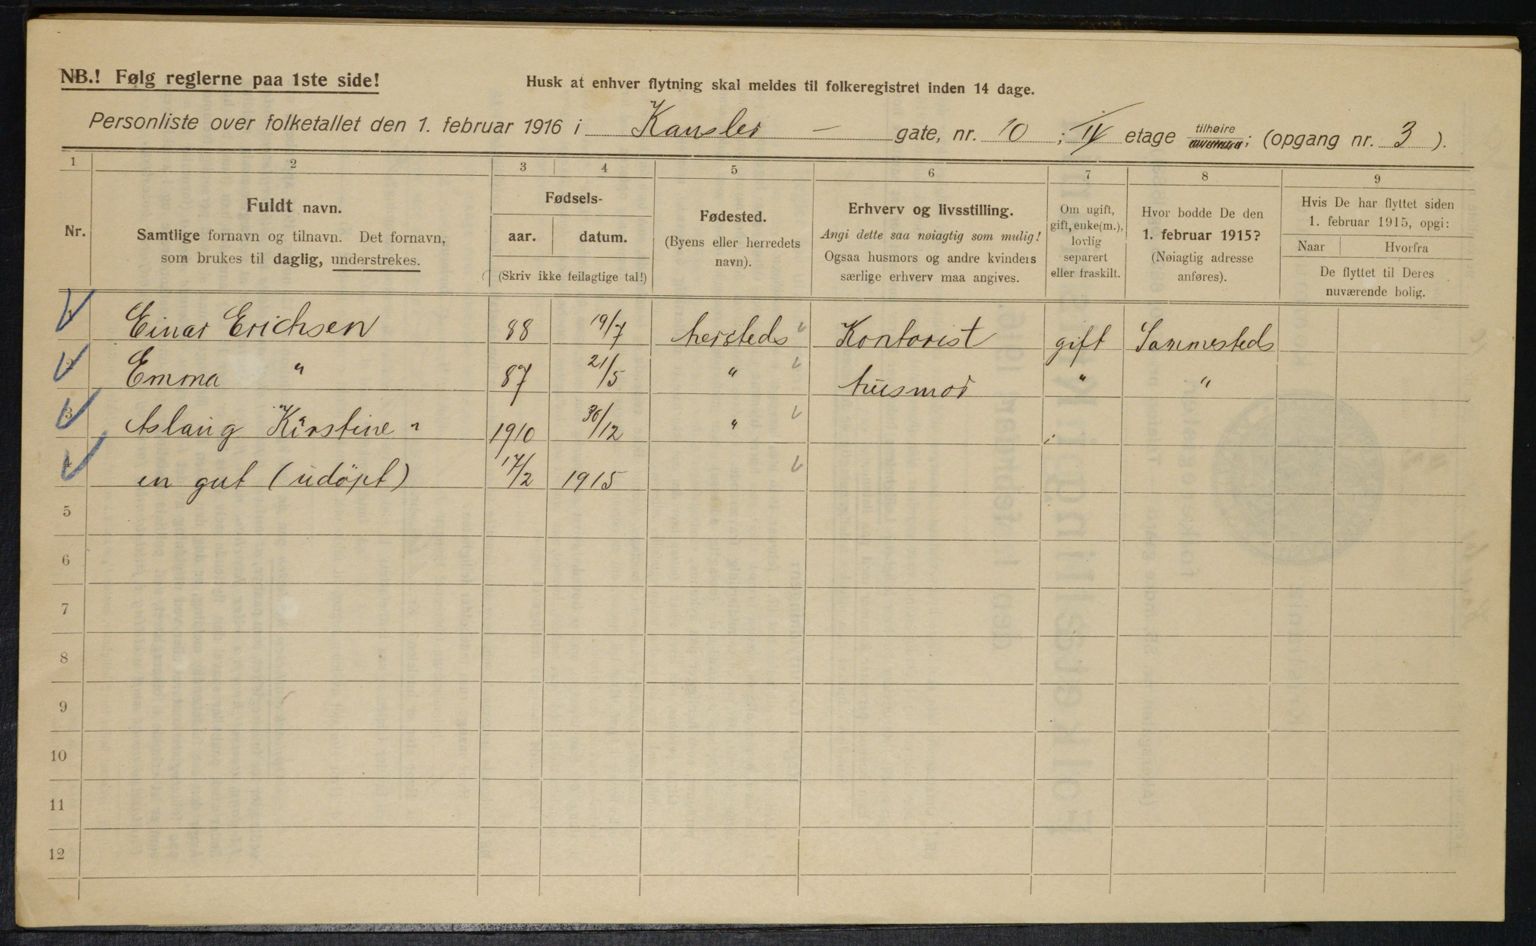 NB.! Følg reglerne paa 1ste side!
Husk at enhver flytning skal meldes til folkeregistret inden 14 dage.
Personliste over folketallet den 1. februar 1916 i Kansler – gate, nr. 10 ; IV etage tilhøire ; (opgang nr. 3 ).
1 2 3 4 5 6 7 8 9
Nr.
Fuldt navn.
Samtlige fornavn og tilnavn. Det fornavn,
som brukes til daglig, understrekes.
Fødsels-
aar. datum.
(Skriv ikke feilagtige tal!)
Fødested.
(Byens eller herredets
navn).
Erhverv og livsstilling.
Angi dette saa nøiagtig som mulig!
Ogsaa husmors og andre kvinders
særlige erhverv maa angives.
Om ugift,
gift, enke(m.),
lovlig
separert
eller fraskilt.
Hvor bodde De den
1. februar 1915?
(Nøiagtig adresse
anføres).
Hvis De har flyttet siden
1. februar 1915, opgi:
Naar Hvorfra
De flyttet til Deres
nuværende bolig.
1 Einar Erichsen 88 19/7 hersteds Kontorist gift Sammesteds
2 Emma " 87 21/5 " husmor " "
3 Aslaug Kirstine " 1910 30/12 "
4 en gut (udøpt) 17/2 1915
5
6
7
8
9
10
11
12